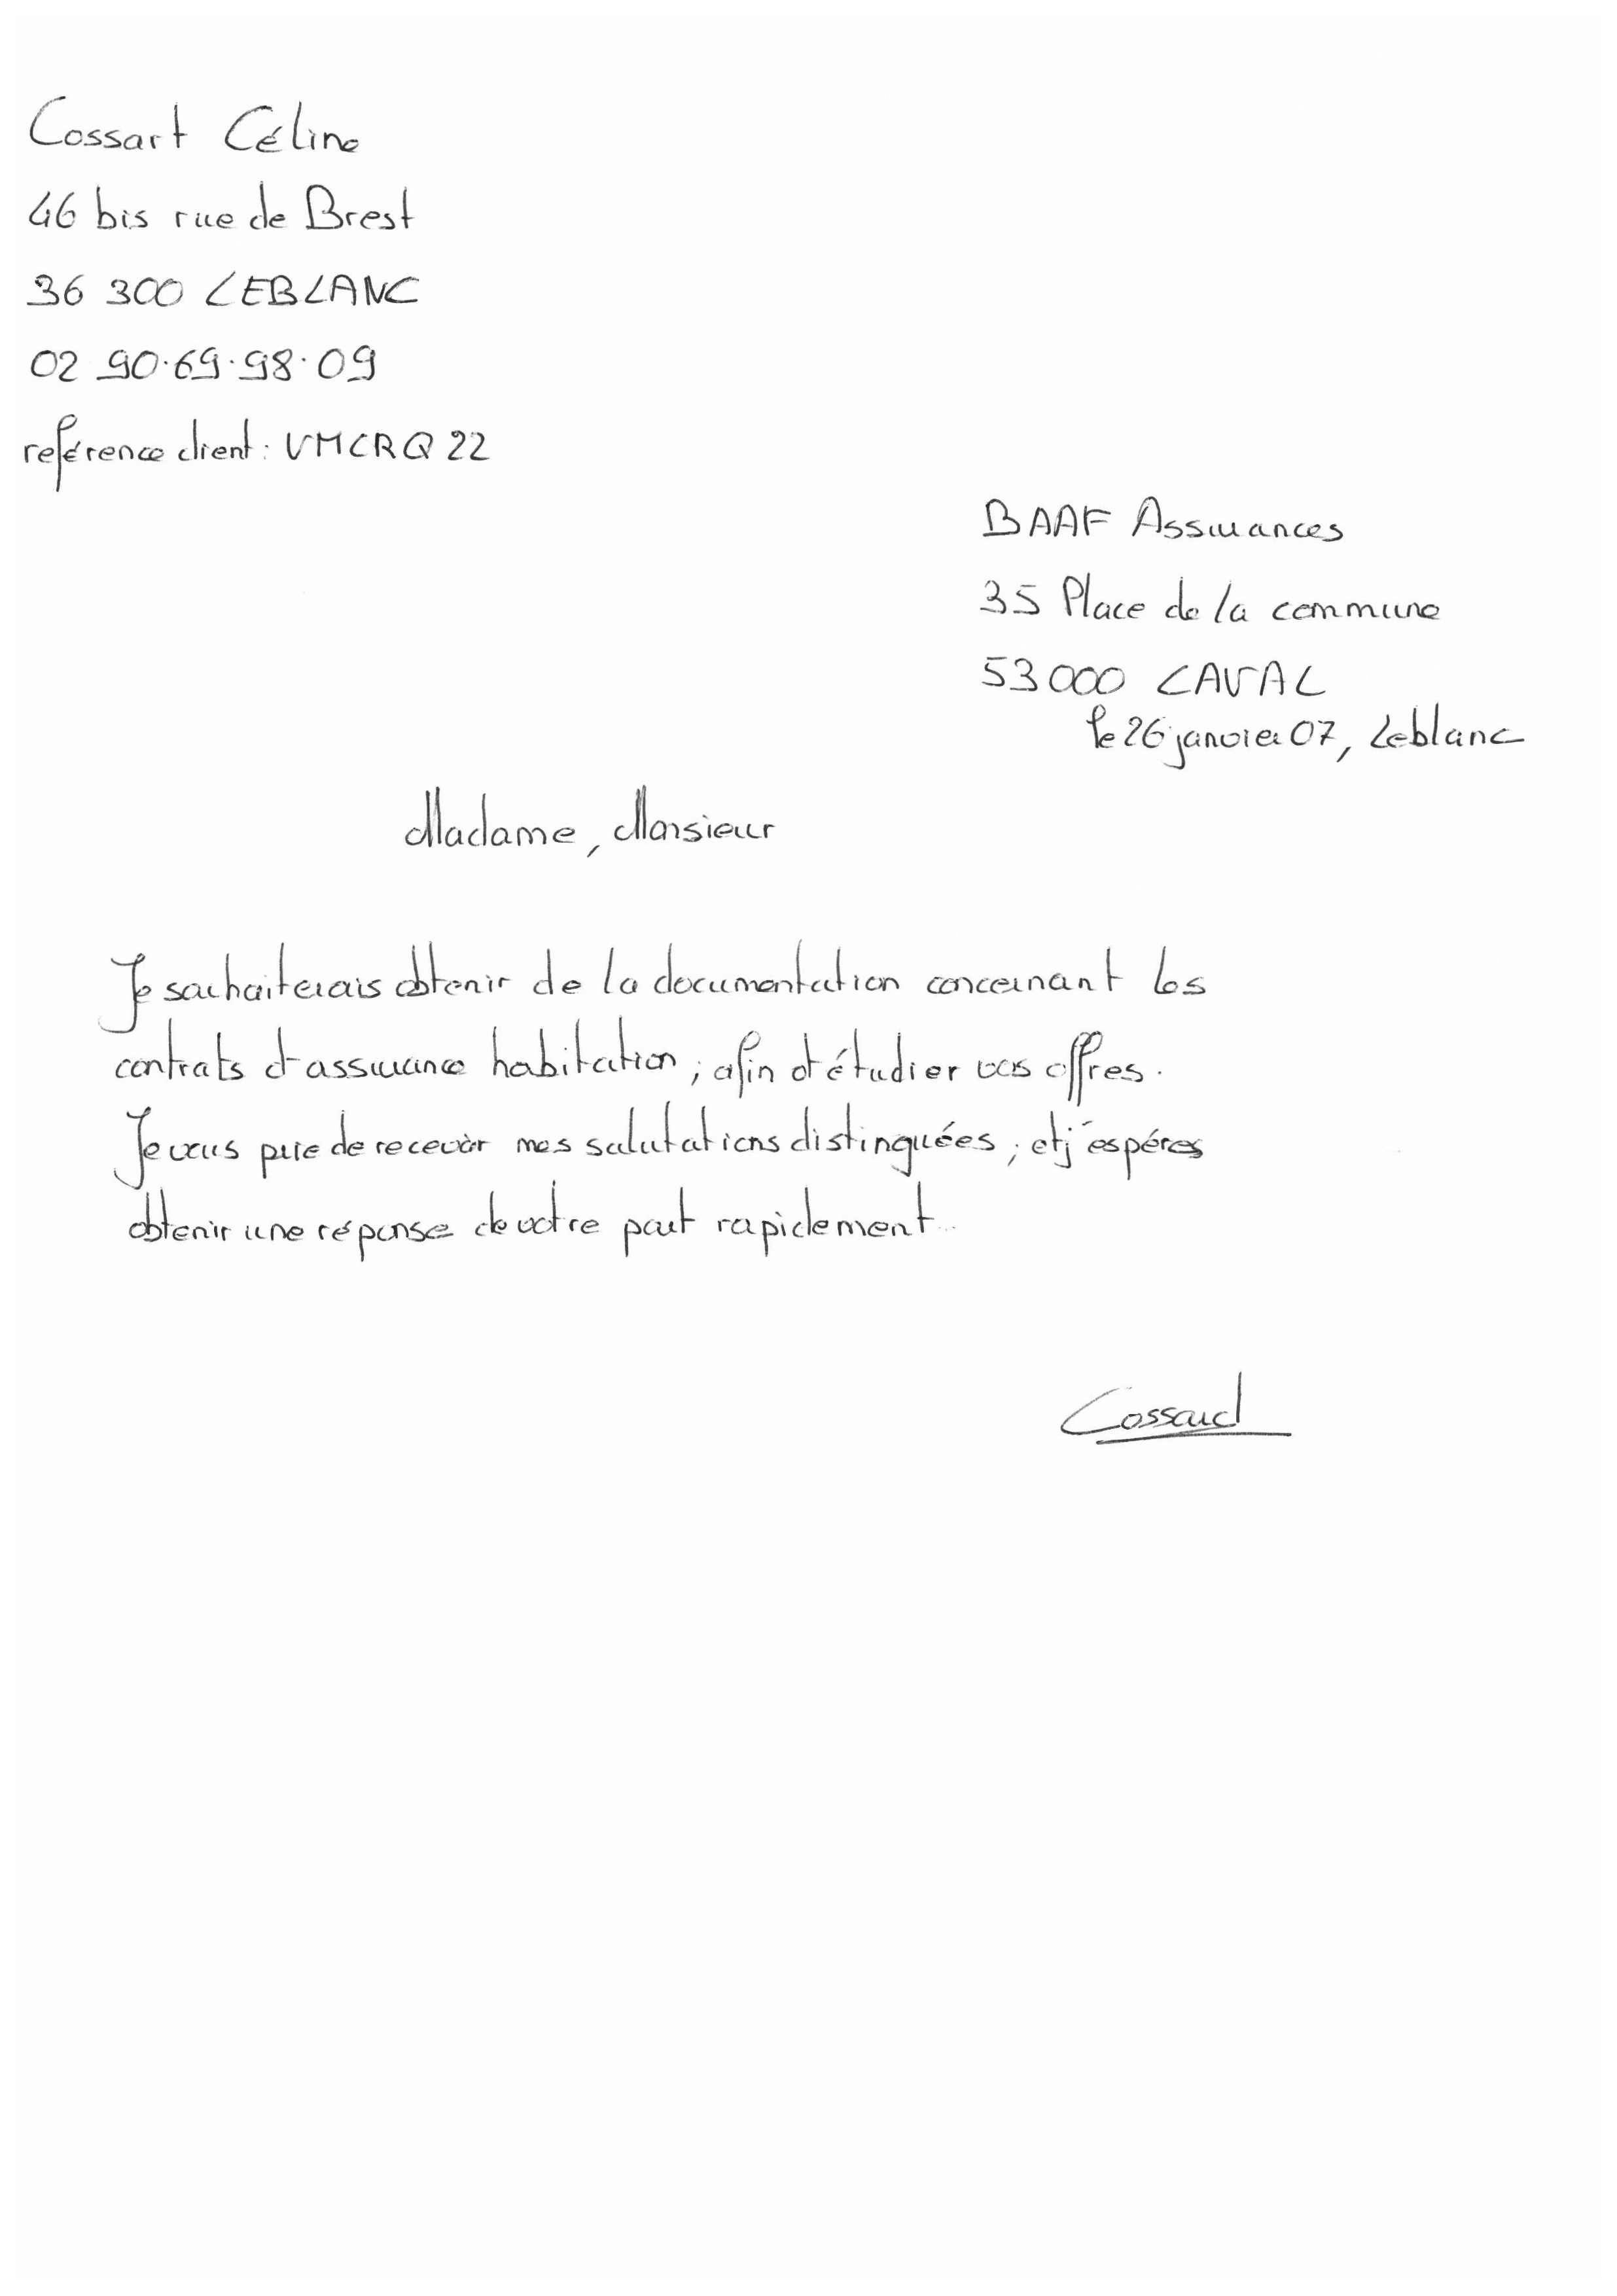 Cossart Céline
46 bis rue de Brest
36 300 LEBLANC
02 90.69.98.09
reférence client : VMCRQ 22
BAAF Assurances
35 Place de la commune
53000 LAVAL
le 26 janvier 07, Leblanc
Madame, Monsieur
Je souhaiterais obtenir de la documentation concernant les
contrats d'assurance habitation ; afin d'étudier vos offres.
Je vous prie de recevoir mes salutations distinguées ; et j'espéres
obtenir une réponse de votre part rapidement.
Cossard